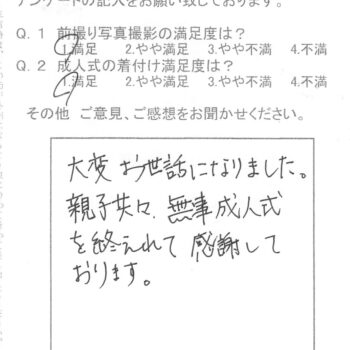 アンケートの記入をお願い致しております。
Q.1 前撮り写真撮影の満足度は?
1.満足 2.やや満足 3.やや不満 4.不満
Q.2 成人式の着付け満足度は?
1.満足 2.やや満足 3.やや不満 4.不満
その他 ご意見、ご感想をお聞かせください。
大変お世話になりました。
親子共々、無事成人式
を終えれて感謝して
おります。